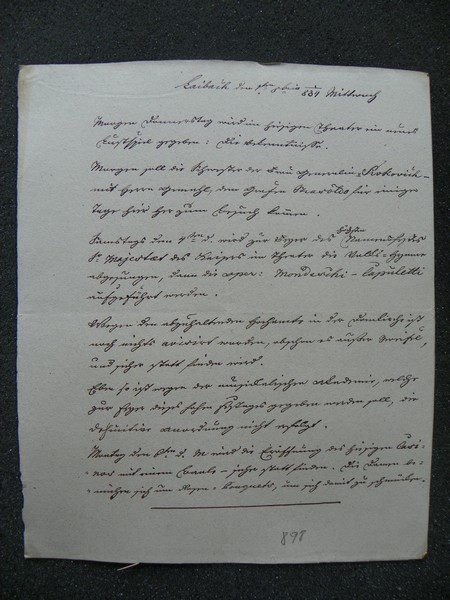 Laibach den 1ten 8bris 834 Mittwoch
Morgen Donnerstag wird im hiesigen Theater ein neues
Lustspiel gegeben: Die Bekenntnisse.
Morgen soll die Schwester der Frau Generalin Rokovich
mit Herrn Gemahl, dem Grafen für einige
Tage hier her zum Besuch kommen.
Samstags den 4ten d. wird zur Feyer des hohen Namensfestes
Sr Majestaet des Kaisers im Theater die Volks-Hymne
abgesungen, dann die Oper: Montecchi-Capuletti
aufgeführt werden.
Wegen den abzuhaltenden Hochamte in der Domkirche ist
noch nichts worden, obschon es außer Zweifel,
und sicher statt finden wird.
Eben so ist wegen der musikalischen Akademie, welche
zur Feyer dieses hohen Festtages gegeben werden soll, die
definitive Anordnung nicht erfolgt.
Montag den d. M. wird die Eröffnung des hiesigen Casi-
nos mit einem Balle sicher statt finden. Die Damen be-
mühen sich um Rosen-Bouquets, um sich damit zu schmücken.
898